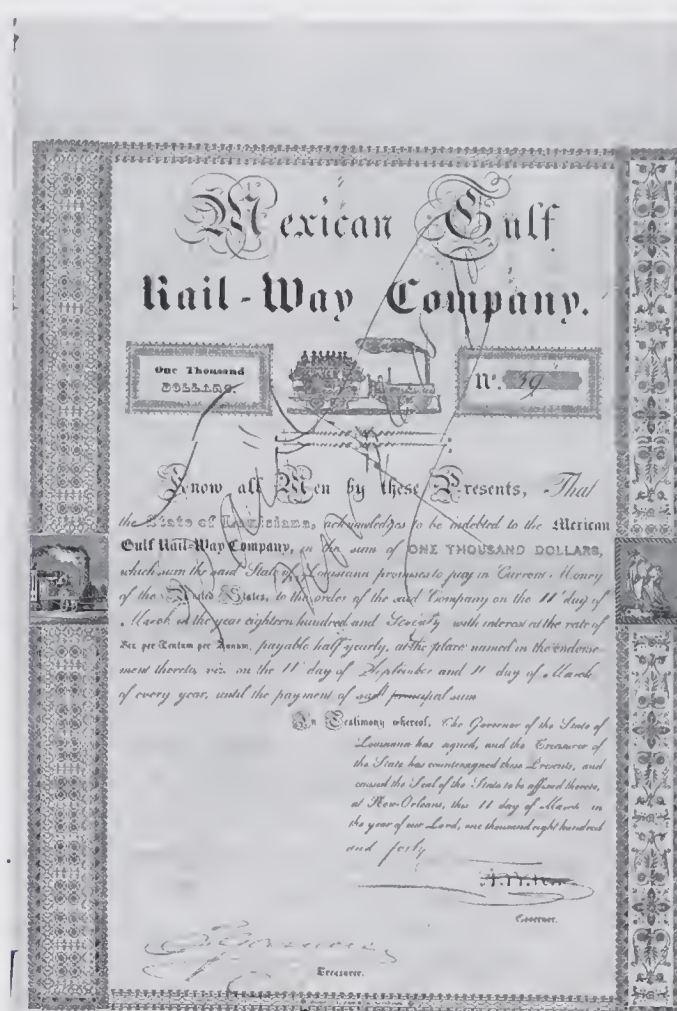 Mexican Gulf
Rail-Way Company.
One Thousand
DOLLARS.
No. 39
Know all Men by these Presents, That
the State of Louisiana, acknowledges to be indebted to the Mexican
Gulf Rail-Way Company, in the sum of ONE THOUSAND DOLLARS,
which sum the said State of Louisiana promises to pay in Current Money
of the United States, to the order of the said Company on the 11 day of
March in the year eighteen hundred and Seventy with interest at the rate of
Six per Centum per Annum, payable half yearly, at the place named in the endorse-
ment thereto, viz. on the 11 day of September and 11 day of March
of every year, until the payment of said principal sum
In Testimony whereof, The Governor of the State of
Louisiana has signed, and the Treasurer of
the State has countersigned these Presents, and
caused the Seal of the State to be affixed thereto,
at New-Orleans, this 11 day of March in
the year of our Lord, one thousand eight hundred
and forty
Governor.
Treasurer.